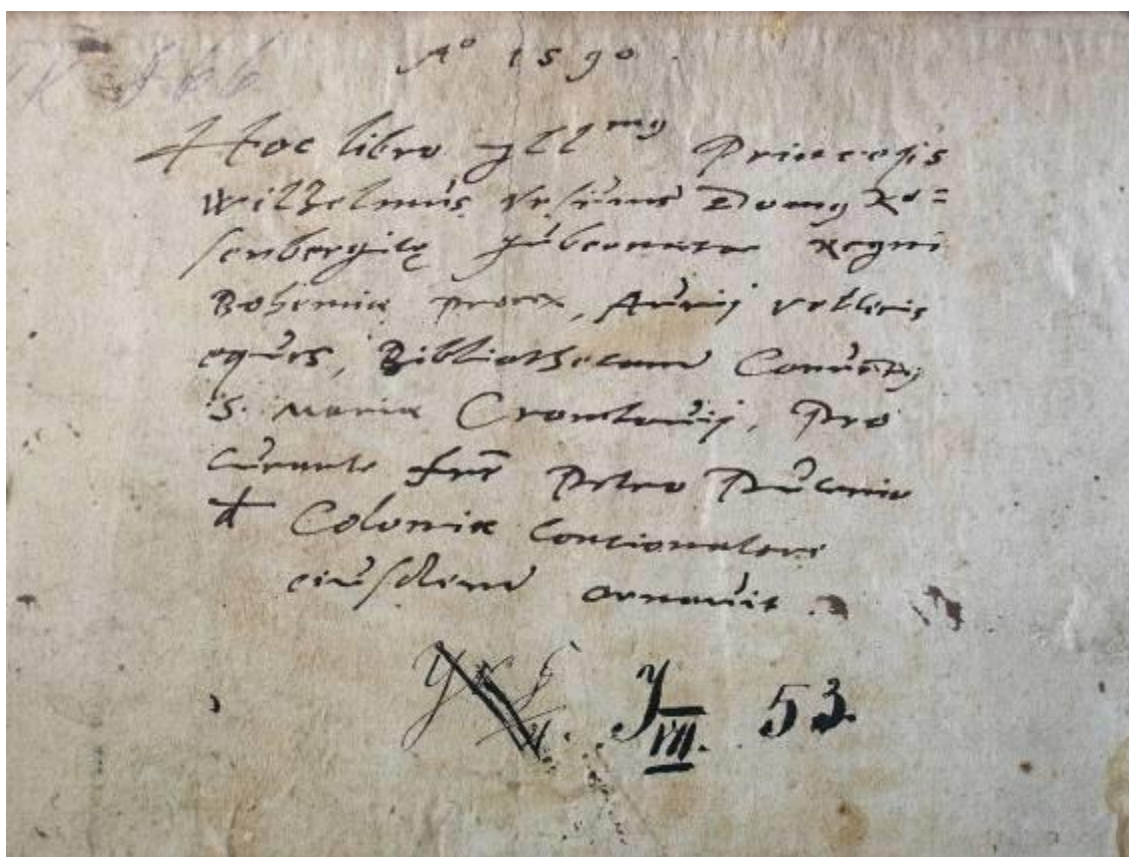 Aº 1590.
Hoc libro Jll^mus Princeps
Wilhelmus Vrsinus Domus Ro=
senbergicę gubernator Regni
Bohemiæ prorex, Aurij velleris
eques, Bibliothecam Conuentus
S. Mariæ Cromlouij, Pro
curante fre Petro
Coloniæ Concionatore
eiusdem ornauit.
Y VII. 53